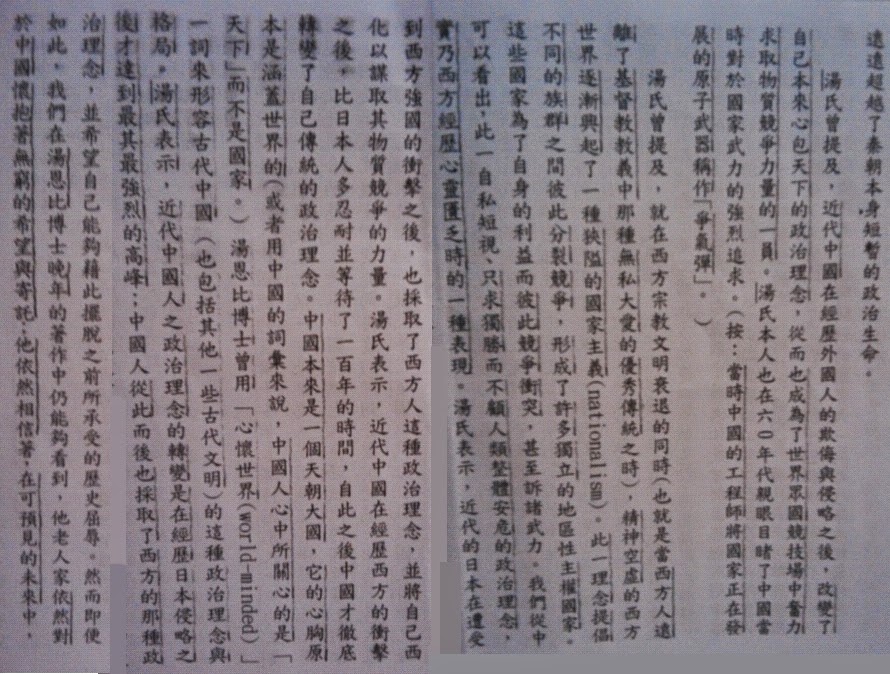 遠遠超越了秦朝本身短暫的政治生命。
湯氏曾提及，近代中國在經歷外國人的欺侮與侵略之後，改變了
自己本來心包天下的政治理念，從而也成為了世界眾國競技場中奮力
求取物質競爭力量的一員。湯氏本人也在六〇年代親眼目睹了中國當
時對於國家武力的強烈追求。（按：當時中國的工程師將國家正在發
展的原子武器稱作「爭氣彈」。）
湯氏曾提及，就在西方宗教文明衰退的同時（也就是當西方人遠
離了基督教教義中那種無私大愛的優秀傳統之時），精神空虛的西方
世界逐漸興起了一種狹隘的國家主義(nationalism)。此一理念提倡
不同的族群之間彼此分裂競爭，形成了許多獨立的地區性主權國家。
這些國家為了自身的利益而彼此競爭衝突，甚至訴諸武力。我們從中
可以看出，此一自私短視、只求獨勝而不顧人類整體安危的政治理念，
實乃西方經歷心靈匱乏時的一種表現。湯氏表示，近代的日本在遭受
到西方強國的衝擊之後，也採取了西方人這種政治理念，並將自己西
化以謀取其物質競爭的力量。湯氏表示，近代中國在經歷西方的衝擊
之後，比日本人多忍耐並等待了一百年的時間，自此之後中國才徹底
轉變了自己傳統的政治理念。中國本來是一個天朝大國，它的心胸原
本是涵蓋世界的（或者用中國的詞彙來說，中國人心中所關心的是「
天下」而不是國家。）湯恩比博士曾用「心懷世界(world-minded)」
一詞來形容古代中國（也包括其他一些古代文明）的這種政治理念與
格局。湯氏表示，近代中國人之政治理念的轉變是在經歷日本侵略之
後才達到最其最強烈的高峰；中國人從此而後也採取了西方的那種政
治理念，並希望自己能夠藉此擺脫之前所承受的歷史屈辱。然而即便
如此，我們在湯恩比博士晚年的著作中仍能夠看到，他老人家依然對
於中國懷抱著無窮的希望與寄託；他依然相信著，在可預見的未來中，